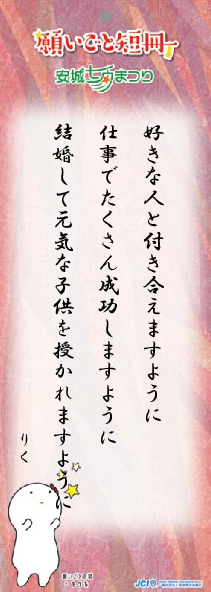 願いごと短冊
安城七夕まつり
好きな人と付き合えますように
仕事でたくさん成功しますように
結婚して元気な子供を授かれますように
りく
JCI